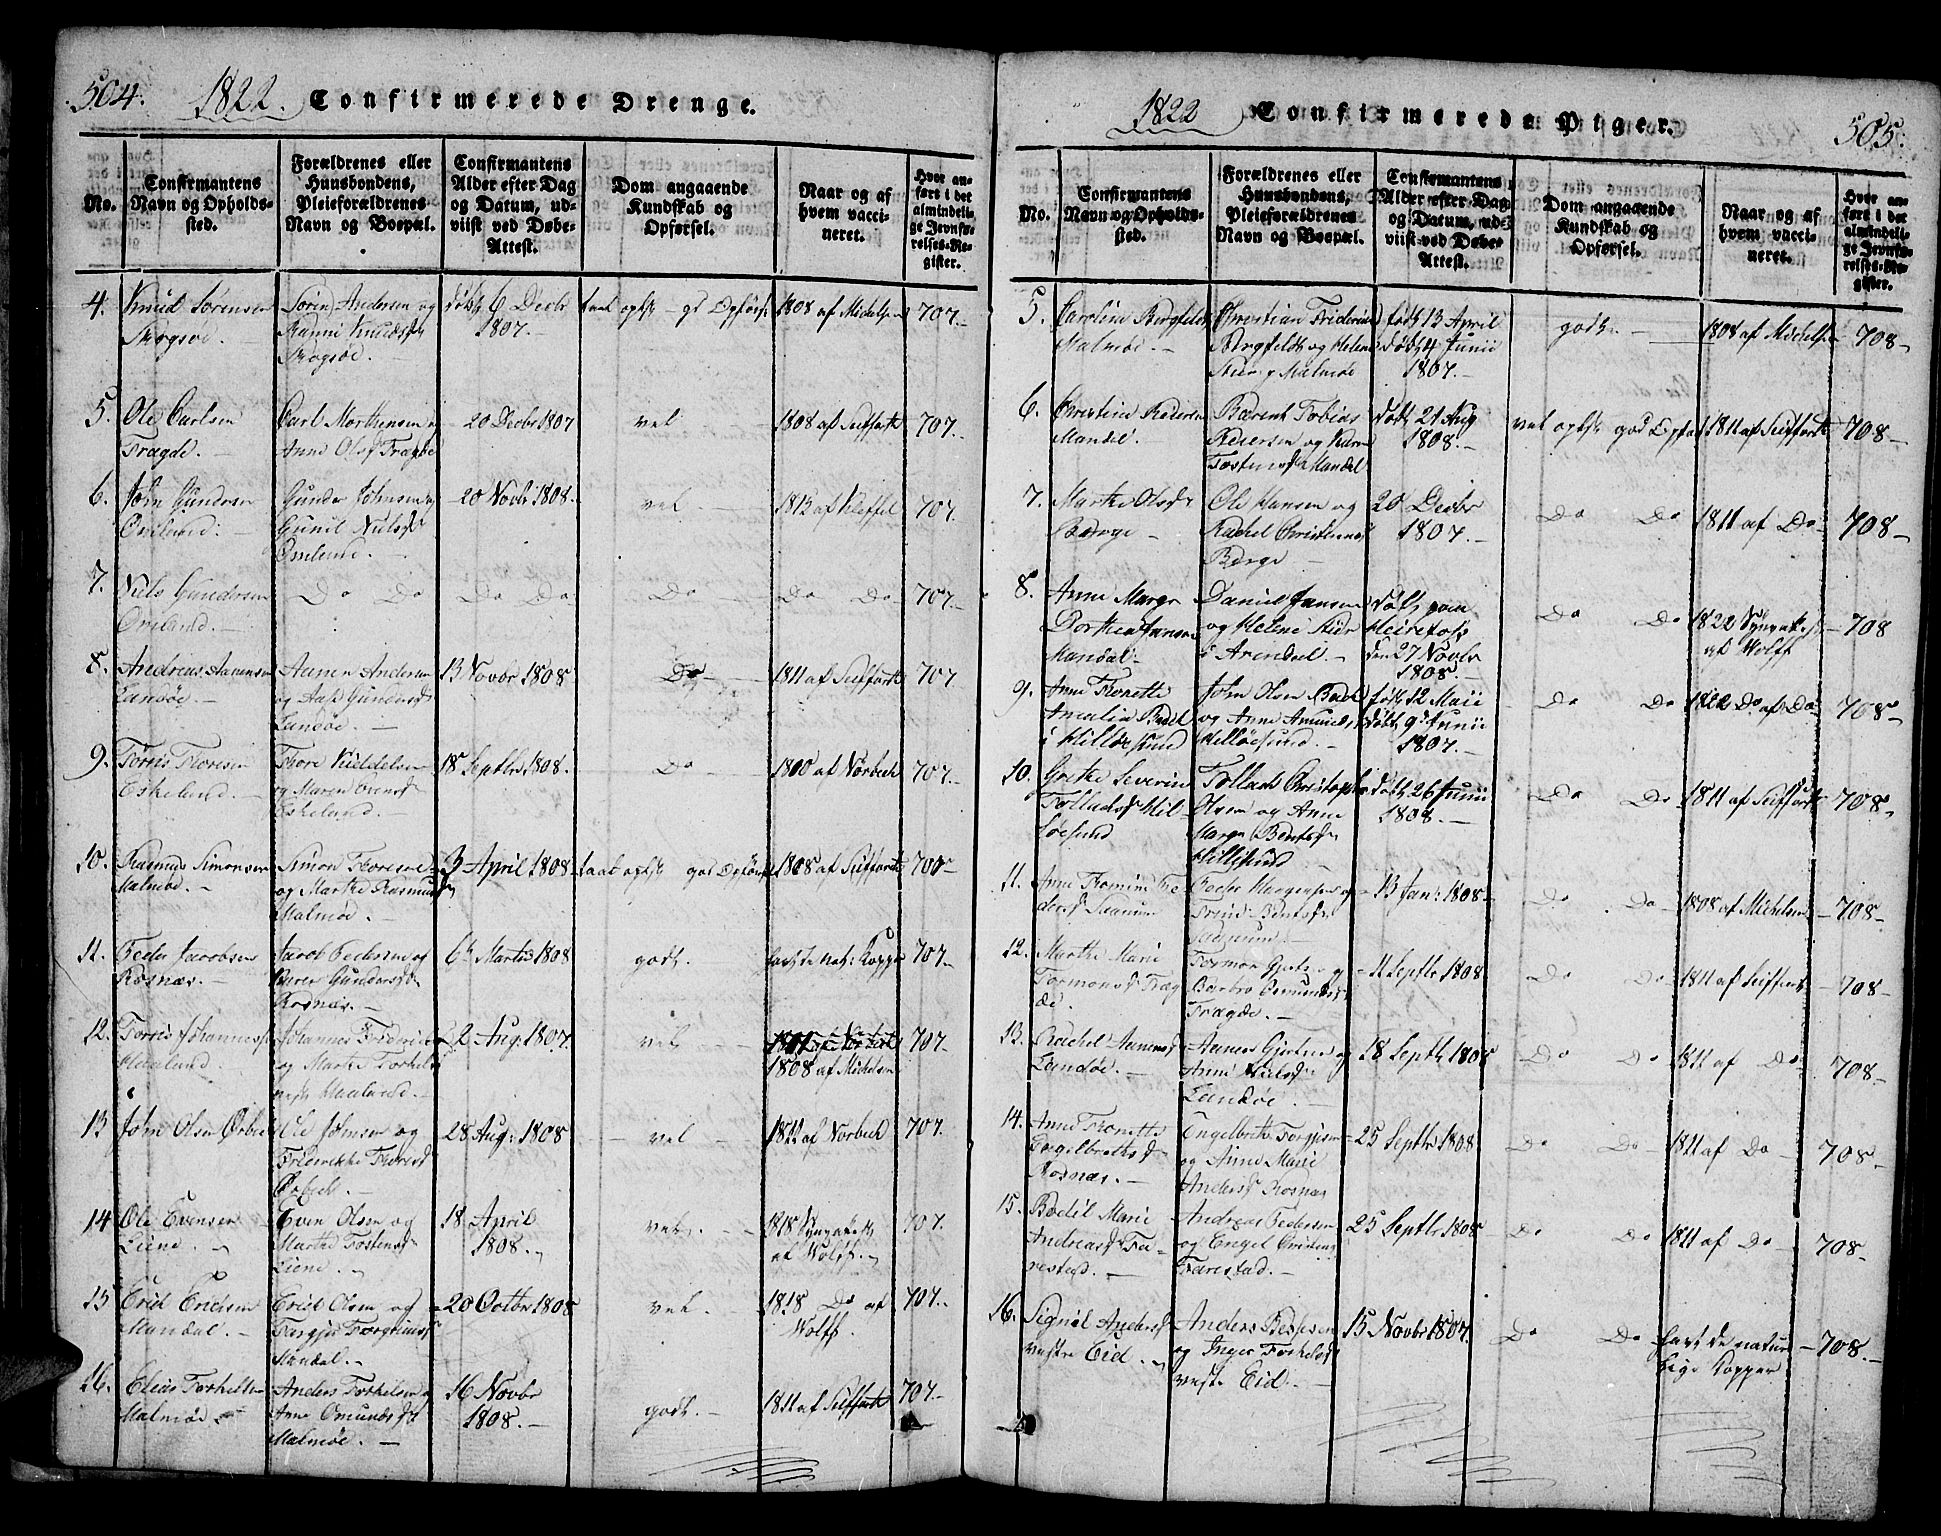 504.
1822. Confirmerede Drenge.
No.
Confirmantens
Navn og Opholds-
sted.
Forældrenes eller
Huusbondens,
Pleieforældrenes
Navn og Boepæl.
Confirmantens
Alder efter Dag
og Datum, ud-
viist ved Døbe-
Attest.
Dom angaaende
Kundskab og
Opførsel.
Naar og af
hvem vacci-
neret.
Hvor an-
ført i det
almindeli-
ge Jevnfø-
relses-Re-
gister.
4. Knud Sørensen
Skogsøe.
Søren Andersen og
Skogsøe.
døbt 6 Decbr
1807.
1808 af Michelsen
707.
5. Ole Carlsen
Tragde.
Carl Morthensen og
Anne Olsd Tragde
20 Decbr 1807
vel
1808 af Seiffarth
707.
6. John Gundersen
Omlund.
Gunder Johnsen og
Gunil Nielsd
Omlund.
20 Novbr 1808.
vel
1813 af Kleffel
707.
7. Niels Gundersen
Omlund.
Do Do
Do Do
Do
Do Do
707.
8. Andreas Aanensen
Landøe.
Aanen Andersen
og Aase Gundersd
Landøe.
13 Novbr 1808
Do
1811 af Seiffarth
707.
9. Torris Thoresen
Eskelund.
Thore Kieldelsen
og Maren Evensd
Eskelund.
18 Septbr 1808.
Do
1800 af Norbech
707.
10. Rasmus Simonsen
Malmøe.
Simon Thoresen
og Marthe Rasmusd
Malmøe.
3 April 1808
1808 af Seiffarth
700
11. Peder Jacobsen
Rosnæs.
Jacob Pedersen og
Karen Gundersd
Rosnæs.
6 Martii 1808
godt.
havt de nat: Kopper
707.
12. Torris Johannesen
Johannes Frederic
og Marthe Torkels
22 Aug: 1807.
vel
1808 af Michelsen
707.
13 John Olsen Orbech
Ole Johnsen og
Friderikke Thoresd
Orbech.
28 Aug: 1808
vel
1811 af Norbech
707.
14 Ole Evensen
Liene.
Even Olsen og
Marthe Tostensd
Liene.
18 April
1808.
vel.
1818
af Wolff.
707.
15 Erich Erichsen
Mandal.
Erich Olsen og
Mandal.
20 Octbr 1808
vel.
1818 Do af
Wolff.
707.
16. Elias Torkelsen
Malmøe
Anders Torkelsen og
Anne Omundsd
Malmøe.
16 Novbr
1808.
godt.
1811 af Seiffarth
707.
1822 Confirmerede Piger.
505.
No.
Confirmantens
Navn og Opholds-
sted.
Forældrenes eller
Huusbondens,
Pleieforældrenes
Navn og Boepæl.
Confirmantens
Alder efter Dag
og Datum, ud-
viist ved Døbe-
Attest.
Dom angaaende
Kundskab og
Opførsel.
Naar og af
hvem vacci-
neret.
Hvor an-
ført i det
almindeli-
ge Jevnfø-
relses-Re-
gister.
5. Caroline Bergfeldt
Malmøe.
Christian Friderich
Bergfeldt og Helene
Malmøe
født 13 April
døbt 4 Junii
1807.
godt.
1808 af Michelsen
708
6. Christine Pedersen
Mandal.
Barent Tobias
Pedersen og Karen
Tostensd Mandal
døbt 21 Aug
1808.
1811 af Seiffarth
708
7. Marthe Olsd
Berge
Ole Hansen og
Rachel
Berge
20 Decbr
1807.
Do Do
1811 af Do
708
8. Anne Margr
Dorthea Jansen
Mandal
Daniel Jansen
og Helene
i Arendal.
døbt
den 27 Novbr
1808.
Do Do
1822
af Wolff
708
9. Anne Thonette
Amalia Buch
i Hilløesund
John Olsen Buch
og Anne Amundsd
Hilløesund.
født 12 Maii
døbt 9 Junii
1807.
Do Do
1822 Do af Do
708
10. Grethe Severine
Tolladsd Hil-
løesund
Tollach Christopher
Olsen og Anne
Margr Bentsd
Hillesund
døbt 26 Junii
1808.
Do Do
1811 af Seiffarth
708
11. Anne Thomine Pe-
dersd Saanum
Peder Haagensen og
Trine Bentsd
Saanum
13 Jan: 1808
Do Do
1808 af Michelsen
708
12. Marthe Marie
Tormonsd Trag-
de.
Tormon Gjertsen og
Barbro Omundsd
Tragde.
11 Septbr 1808
Do Do
1811 af Seiffarth
708
13. Rachel Aanensd
Landøe.
Aanen Gjertsen og
Anne Nielsd
Landøe.
18 Septbr 1808
Do Do
1811 af Do
708
14. Anne Thonette
Engelbrethsd
Rosnæs.
Engelbreth Torgjusen
og Anne Marie
Andersd Rosnæs
25 Septbr 1808
Do Do
1811 af Do
708
15. Bodil Marie
Andreasd Fa-
restad.
Andreas Pedersen
og Engel
Farestad.
25 Septbr 1808
Do Do
1811 af Do
708
16. Signil Andersd
vestre Eid.
Anders Bessesen
og Inger Torkelsd
vestr Eid.
15 Novbr 1807.
Do Do
havt de natur
lige Kopper
708.